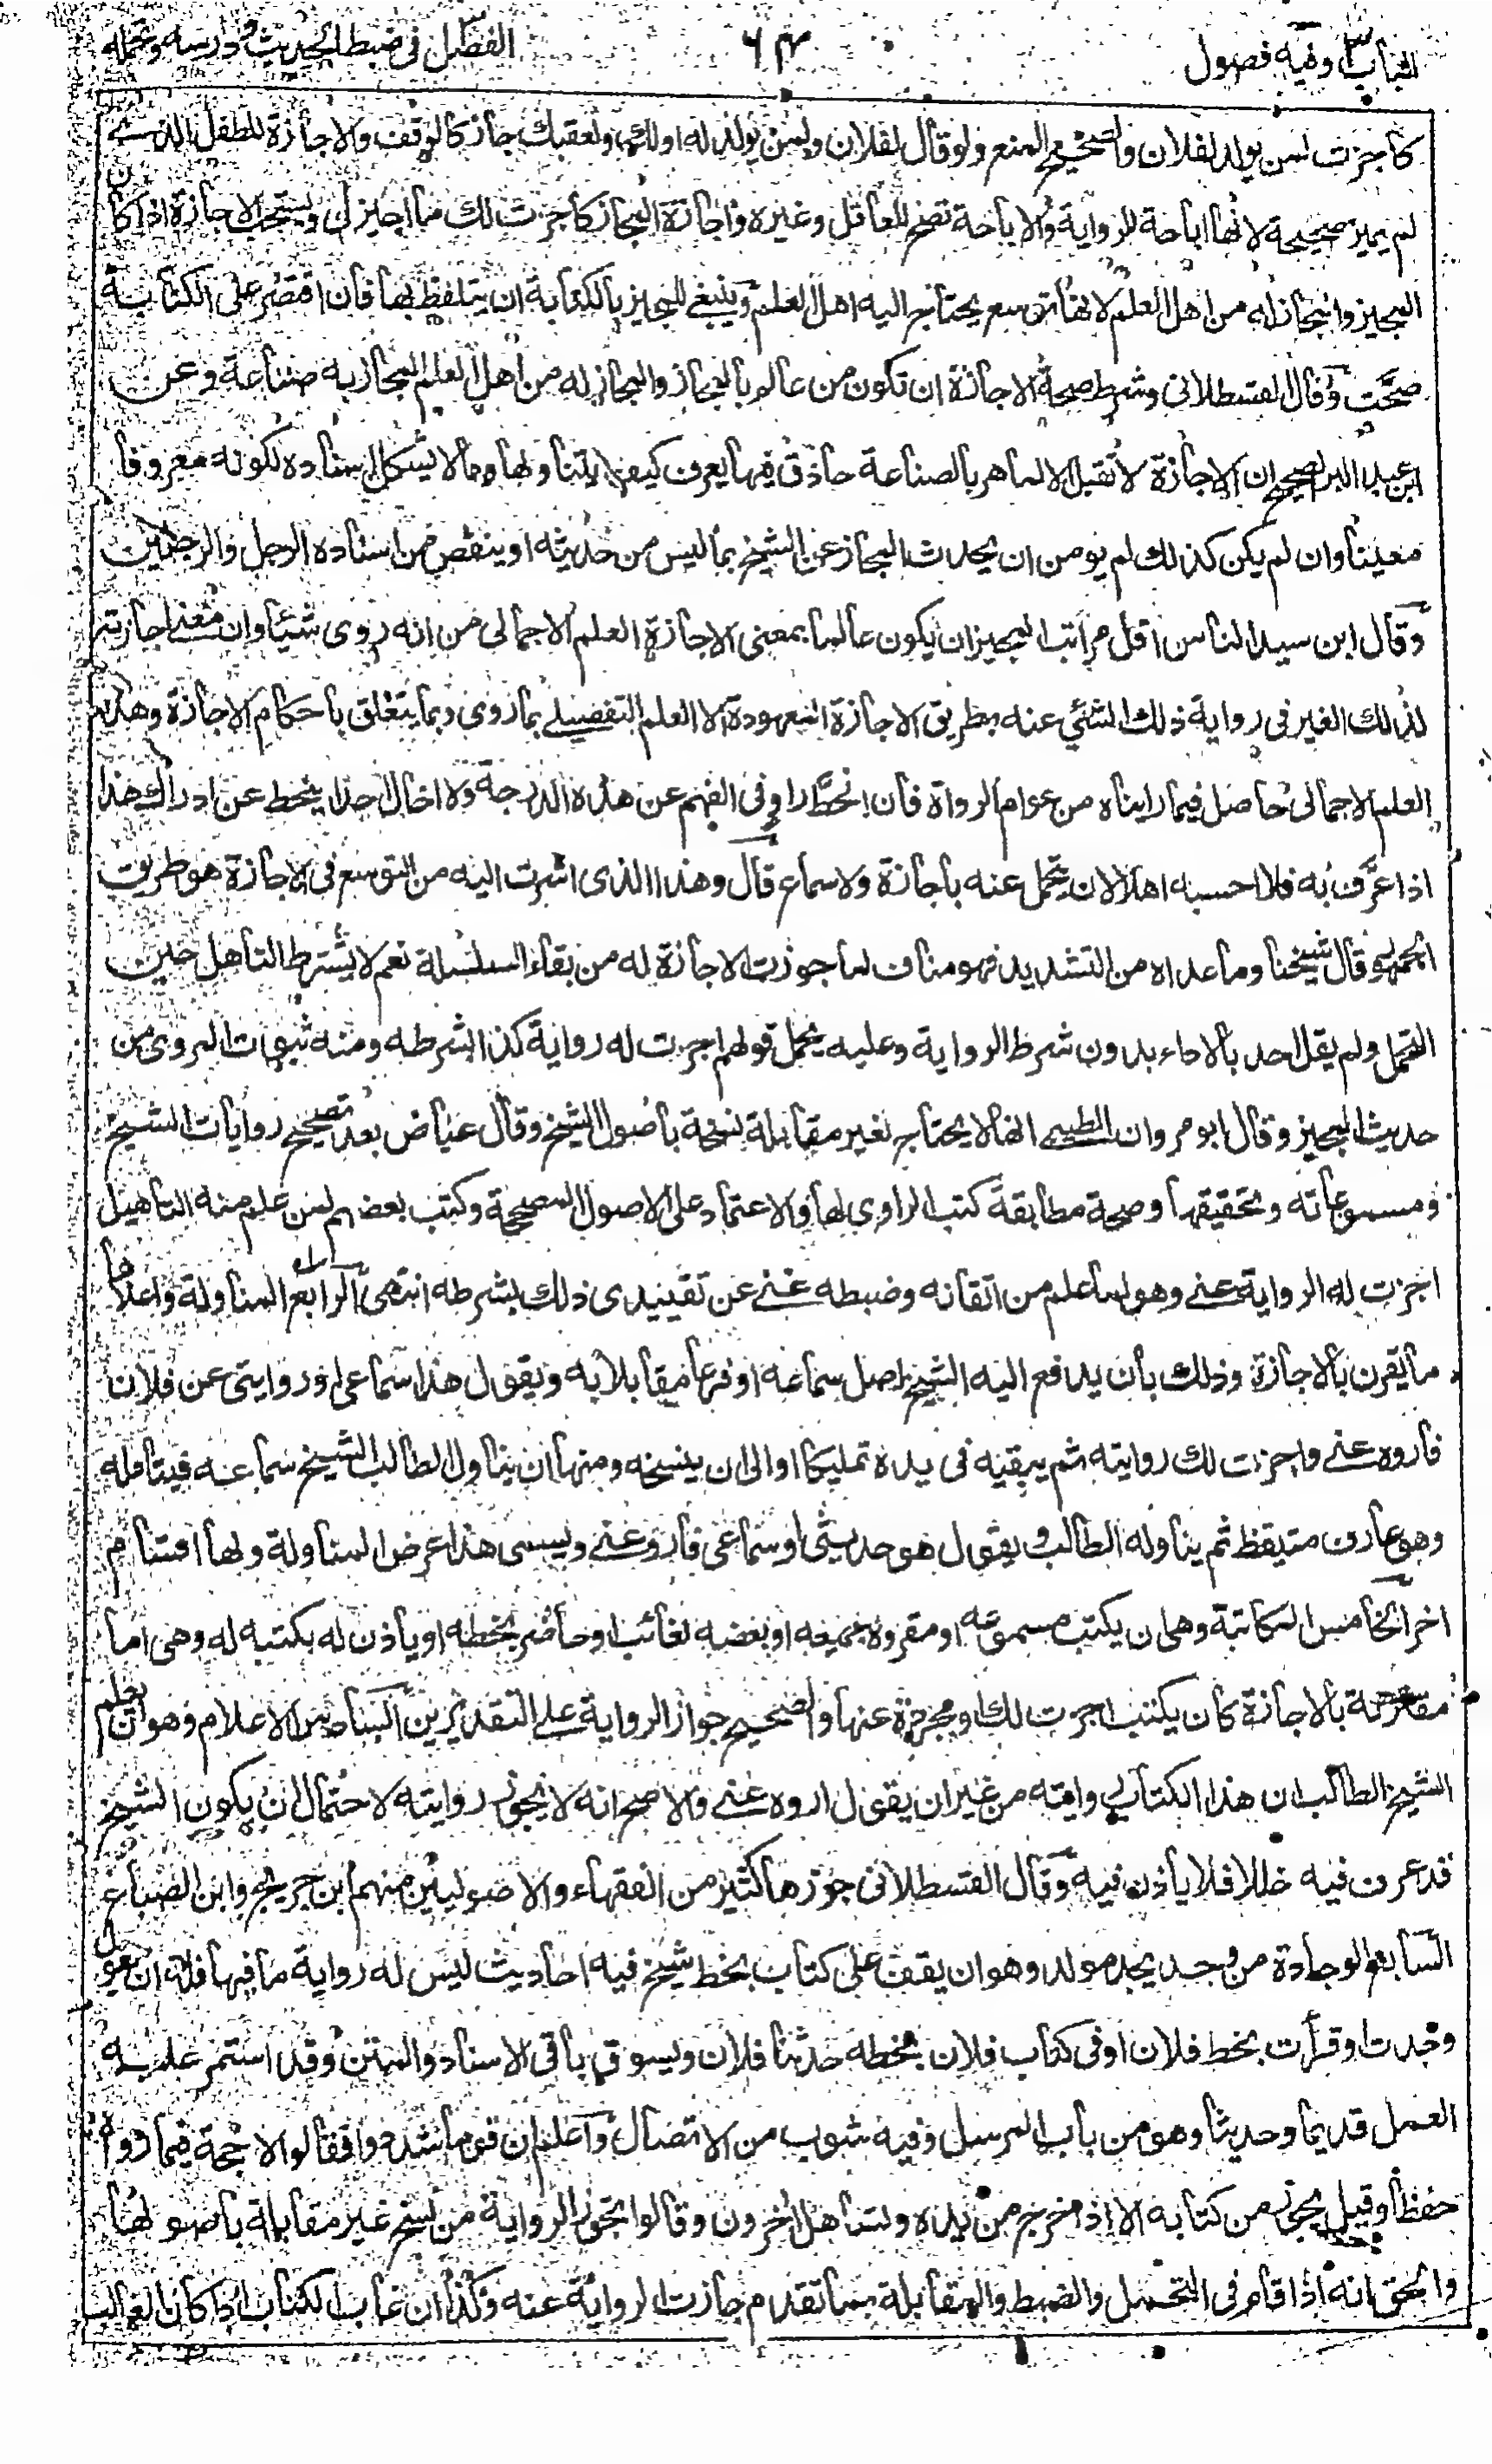 الباب ٣ وفيه فصول
٦٣
الفصل فى ضبط الحديث ودرسه وتحمله
كاجزت لمن يولد لفلان والصحيح المنع ولو قال لفلان ولمن يولد له اولك ولعقبك جاز كالوقف والاجازة للطفل الذى
لم يميز صحيحة لانها اباحة للرواية والاباحة تصح للعاقل وغيره واجازة المجاز كاجزت لك ما اجيز لى ويستحب الاجازة اذا كان
المجيز والمجاز له من اهل العلم لانها توسع يحتاج اليه اهل العلم وينبغى للمجيز بالكتابة ان يتلفظ بها فان اقتصر على الكتابة
صحّت وقال القسطلانى وشرط صحة الاجازة ان تكون من عالم بالمجاز والمجاز له من اهل العلم المجاز به صناعة وعن
ابن عبد البر الصحيح ان الاجازة لا تقبل الا لماهر بالصناعة حاذق فيها يعرف كيف يتناولها وما لا يشكل اسناده لكونه معروفا
معينا وان لم يكن كذلك لم يومن ان يحدث المجاز عن الشيخ بما ليس من حديثه او ينقص من اسناده الرجل والرجلين
وقال ابن سيد الناس اقل مراتب المجيز ان يكون عالما بمعنى الاجازة العلم الاجمالى من انه روى شيئا وان معنى اجازته
لذلك الغير فى رواية ذلك الشئي عنه بطريق الاجازة المعهودة لا العلم التفصيلى بما روى وبما يتعلق باحكام الاجازة وهذا
العلم الاجمالى حاصل فيما رايناه من عوام الرواة فان انحطّ راو فى الفهم عن هذه الدرجة ولا اخال احدا ينحط عن ادراك هذا
اذا عرّف به فلا احسبه اهلا لان يتحمل عنه باجازة ولا سماع قال وهذا الذى اشرت اليه من التوسع فى الاجازة هو طريق
الجمهور قال شيخنا وما عداه من التشديد فهو مناف لما جوزت الاجازة له من بقاء السلسلة نعم لا يشترط التاهل حين
التحمل ولم يقل احد بالاداء بدون شرط الرواية وعليه يحمل قولهم اجزت له رواية كذا بشرطه ومنه ثبوت المروى من
حديث المجيز وقال ابو مروان الطبنى انها لا يحتاج لغير مقابلة نسخة باصول الشيخ وقال عياض بعد تصحيح روايات الشيخ
ومسموعاته وتحقيقها وصحة مطابقة كتب الراوى لها والاعتماد على الاصول المصححة وكتب بعضهم لمن علم منه التاهيل
اجزت له الرواية عنى وهو لما علم من اتقانه وضبطه غنى عن تقييدى ذلك بشرطه انتهى الرابع المناولة واعلاها
ما يقرن بالاجازة وذلك بان يدفع اليه الشيخ اصل سماعه او فرعا مقابلا به ويقول هذا سماعى او روايتى عن فلان
فاروه عنى واجزت لك روايته ثم يبقيه فى يده تمليكا او الى ان ينسخه ومنها ان يناول الطالب الشيخ سماعه فيتامله
وهو عارف متيقظ ثم يناوله الطالب ويقول هو حديثى او سماعى فاروعنى ويسمى هذا عرض المناولة ولها اقسام
اخر الخامس المكاتبة وهى ان يكتب مسموعه او مقروه جميعه او بعضه لغائب او حاضر بخطه او ياذن له بكتبه له وهى اما
مقترنة بالاجازة كان يكتب اجزت لك او مجردة عنها والصحيح جواز الرواية على التقديرين السادس الاعلام وهو ان يعلم
الشيخ الطالب ان هذا الكتاب روايته من غير ان يقول اروه عنى والاصح انه لا يجوز روايته لاحتمال ان يكون الشيخ
قد عرف فيه خللا فلا ياذن فيه وقال القسطلانى جوزها كثير من الفقهاء والاصوليين منهم ابن جريج وابن الصباغ
السابع الوجادة من وجد يجد مولد وهو ان يقف على كتاب بخط شيخ فيه احاديث ليس له رواية ما فيها فله ان يقول
وجدت او قرأت بخط فلان او فى كتاب فلان بخطه حدثنا فلان ويسوق باقى الاسناد والمتن وقد استمر عليه
العمل قديما وحديثا وهو من باب المرسل وفيه شوب من الاتصال واعلم ان قوما شددوا فقالوا لا حجة فيما رواه
حفظا وقيل يجوز من كتابه الا اذا خرج من يده وتساهل اخرون وقالوا تجوز الرواية من نسخ غير مقابلة باصولها
والحق انه اذا قام فى التحمل والضبط والمقابلة بما تقدم جازت الرواية عنه وكذا ان غاب الكتاب اذا كان الغالب